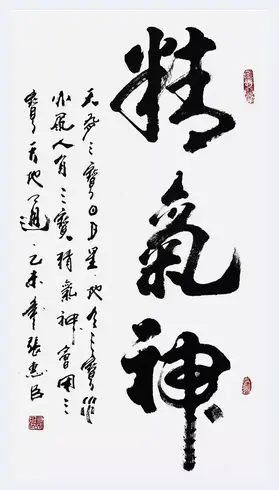 精氣神
天有三寶日月星地有三寶水
火風人有三寶精氣神會用三
寶天地通乙未年張惠臣